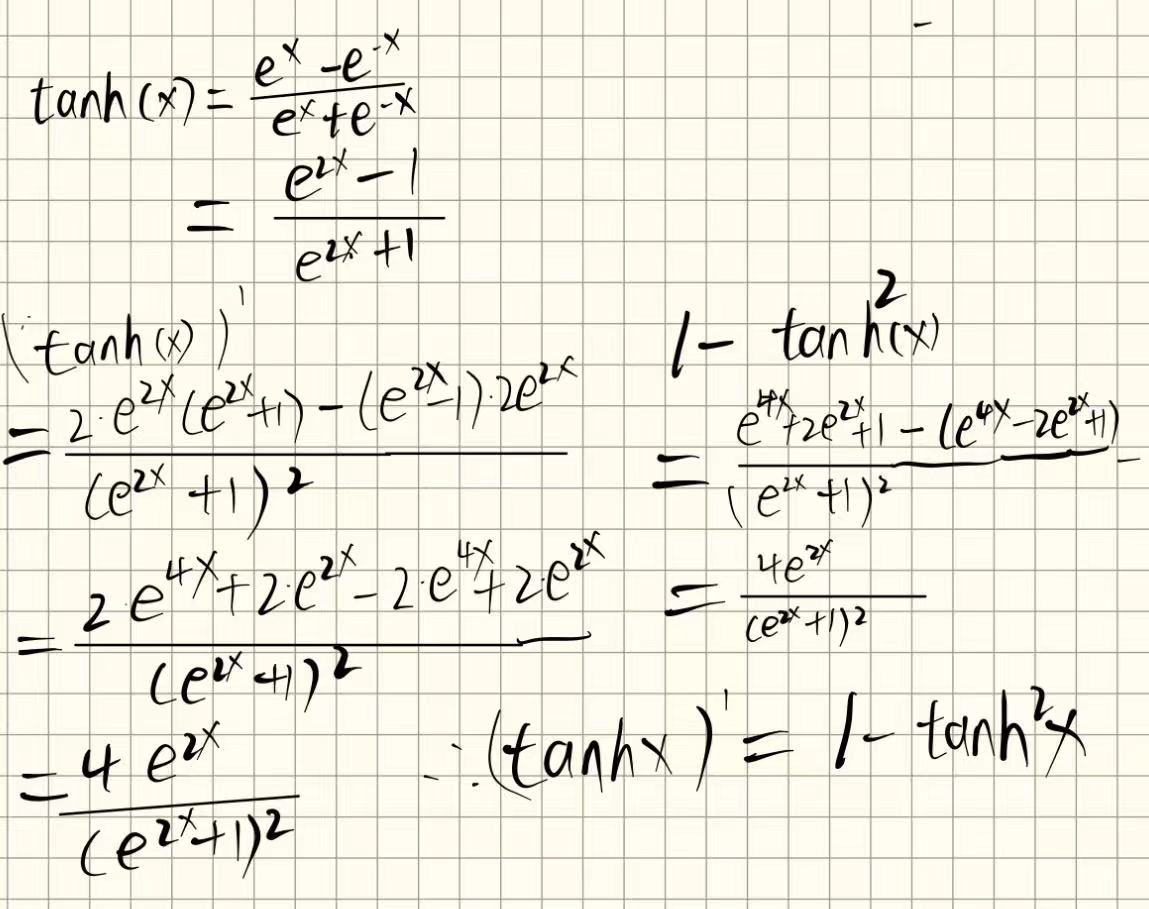 tanh(x) = (e^x - e^-x)/(e^x + e^-x)
= (e^2x - 1)/(e^2x + 1)
(tanh(x))'
= (2·e^2x(e^2x+1) - (e^2x-1)·2e^2x)/(e^2x+1)^2
= (2·e^4x + 2·e^2x - 2·e^4x + 2·e^2x)/(e^2x+1)^2
= 4e^2x/(e^2x+1)^2
1 - tanh^2(x)
= (e^4x+2e^2x+1 - (e^4x-2e^2x+1))/(e^2x+1)^2
= 4e^2x/(e^2x+1)^2
∴ (tanhx)' = 1 - tanh^2x